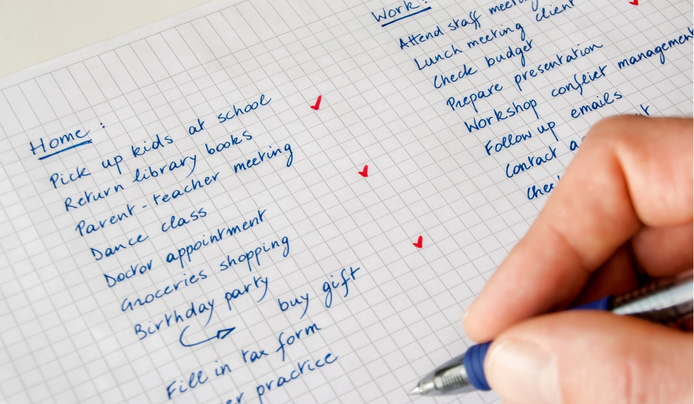 Home:
Pick up kids at school
Return library books
Parent-teacher meeting
Dance class
Doctor appointment
Groceries shopping
Birthday party
buy gift
Fill in tax form
practice
Work:
Attend staff meeting
Lunch meeting client
Check budget
Prepare presentation
Workshop conflict management
Follow up emails
Contact